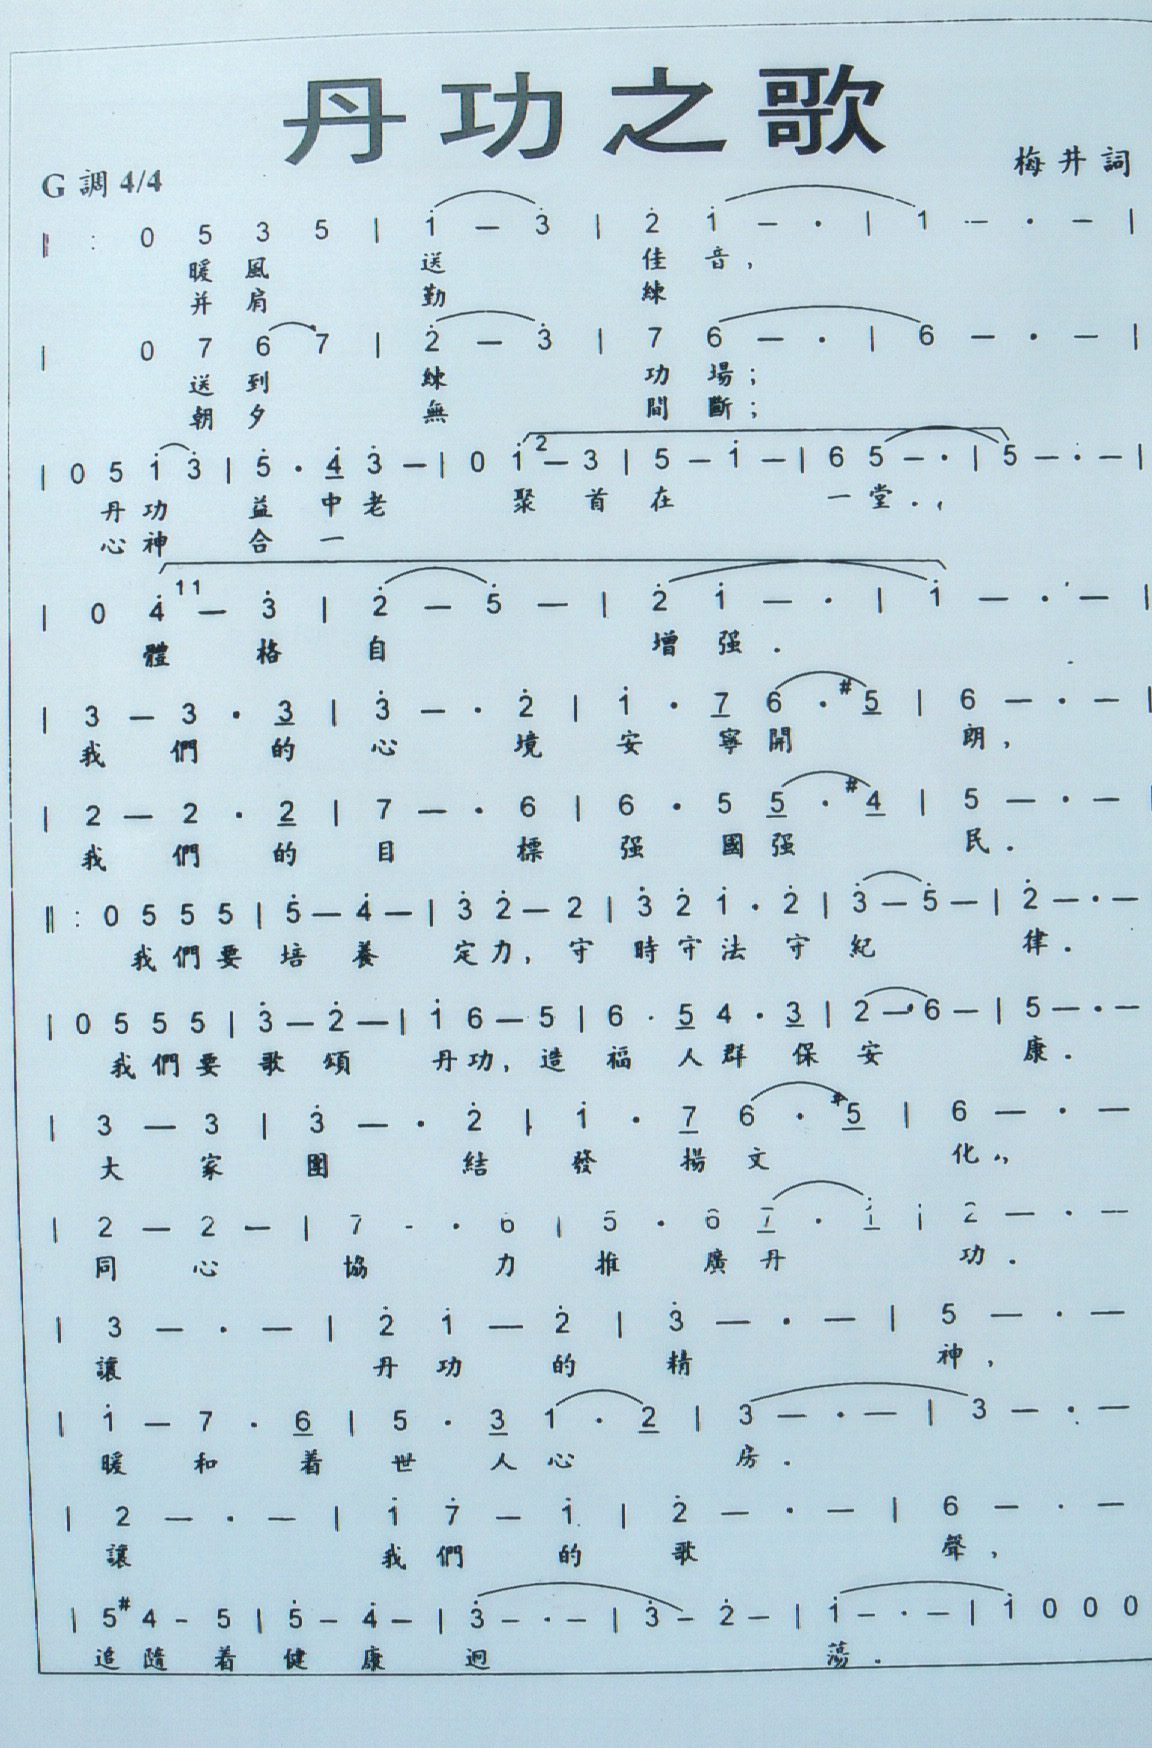 丹功之歌
G調4/4
梅井詞
‖: 0 5 3 5 | i̇ — 3̇ | 2̇ i̇ — · | i — · — |
暖風 送 佳音,
并肩 勤 練
| 0 7 6 7 | 2̇ — 3̇ | 7 6 — · | 6 — · — |
送到 練 功場;
朝夕 無 間斷;
| 0 5 1̇ 3̇ | 5̇ · 4̇ 3̇ — | 0 1̇ 2 — 3 | 5 — 1̇ — | 6 5 — · | 5 — · — |
丹功 益中老 聚首在 一堂.,
心神 合一
| 0 4̇ 11 — 3̇ | 2̇ — 5̇ — | 2̇ 1̇ — · | 1̇ — · — |
體格自 增强.
| 3 — 3 · 3 | 3̇ — · 2̇ | 1̇ · 7 6 · #5 | 6 — · — |
我們的心 境安寧開 朗,
| 2 — 2 · 2 | 7 — · 6 | 6 · 5 5 · #4 | 5 — · — |
我們的目 標强國强 民.
‖: 0 5 5 5 | 5̇ — 4̇ — | 3̇ 2̇ — 2 | 3̇ 2̇ 1̇ · 2̇ | 3̇ — 5̇ — | 2̇ — · —
我們要培養 定力,守時守法守紀 律.
| 0 5 5 5 | 3̇ — 2̇ — | 1̇ 6 — 5 | 6 · 5 4 · 3 | 2 — 6 — | 5 — · —
我們要歌頌 丹功,造福人群保安 康.
| 3 — 3 | 3̇ — · 2̇ | 1̇ · 7 6 · #5 | 6 — · —
大家團 結發揚文 化.,
| 2 — 2 — | 7 - · 6 | 5 · 6 7 · 1̇ | 2 — · —
同心協 力推廣丹 功.
| 3 — · — | 2̇ 1̇ — 2̇ | 3̇ — · — | 5 — · —
讓 丹功的精 神,
| 1̇ — 7 · 6 | 5 · 3 1 · 2 | 3 — · — | 3 — · —
暖和着世人心 房.
| 2 — · — | 1̇ 7̇ — 1̇ | 2̇ — · — | 6 — · —
讓 我們的歌 聲,
| 5 #4 - 5 | 5̇ — 4̇ — | 3̇ — · — | 3̇ — 2̇ — | 1̇ — · — | 1̇ 0 0 0
追隨着健康迴 蕩.